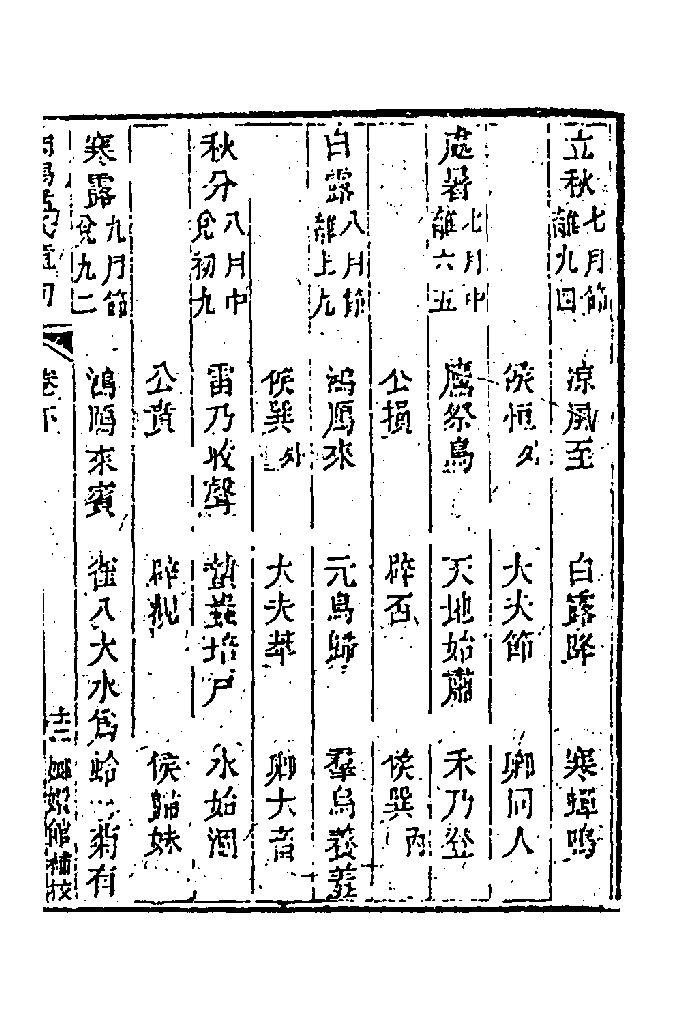 立秋七月節離九四　涼風至　白露降　寒蟬鳴
侯恒外　大夫節　卿同人
處暑七月中離六五　鷹祭鳥　天地始肅　禾乃登
公損　辟否　侯巽內
白露八月節離上九　鴻鴈來　元鳥歸　羣鳥養羞
侯巽外　大夫萃　卿大畜
秋分八月中兌初九　雷乃收聲　蟄蟲坯戶　水始涸
公賁　辟觀　侯歸妹
寒露九月節兌九二　鴻鴈來賓　雀入大水為蛤　菊有
卷下　十二　嫏嬛館補校